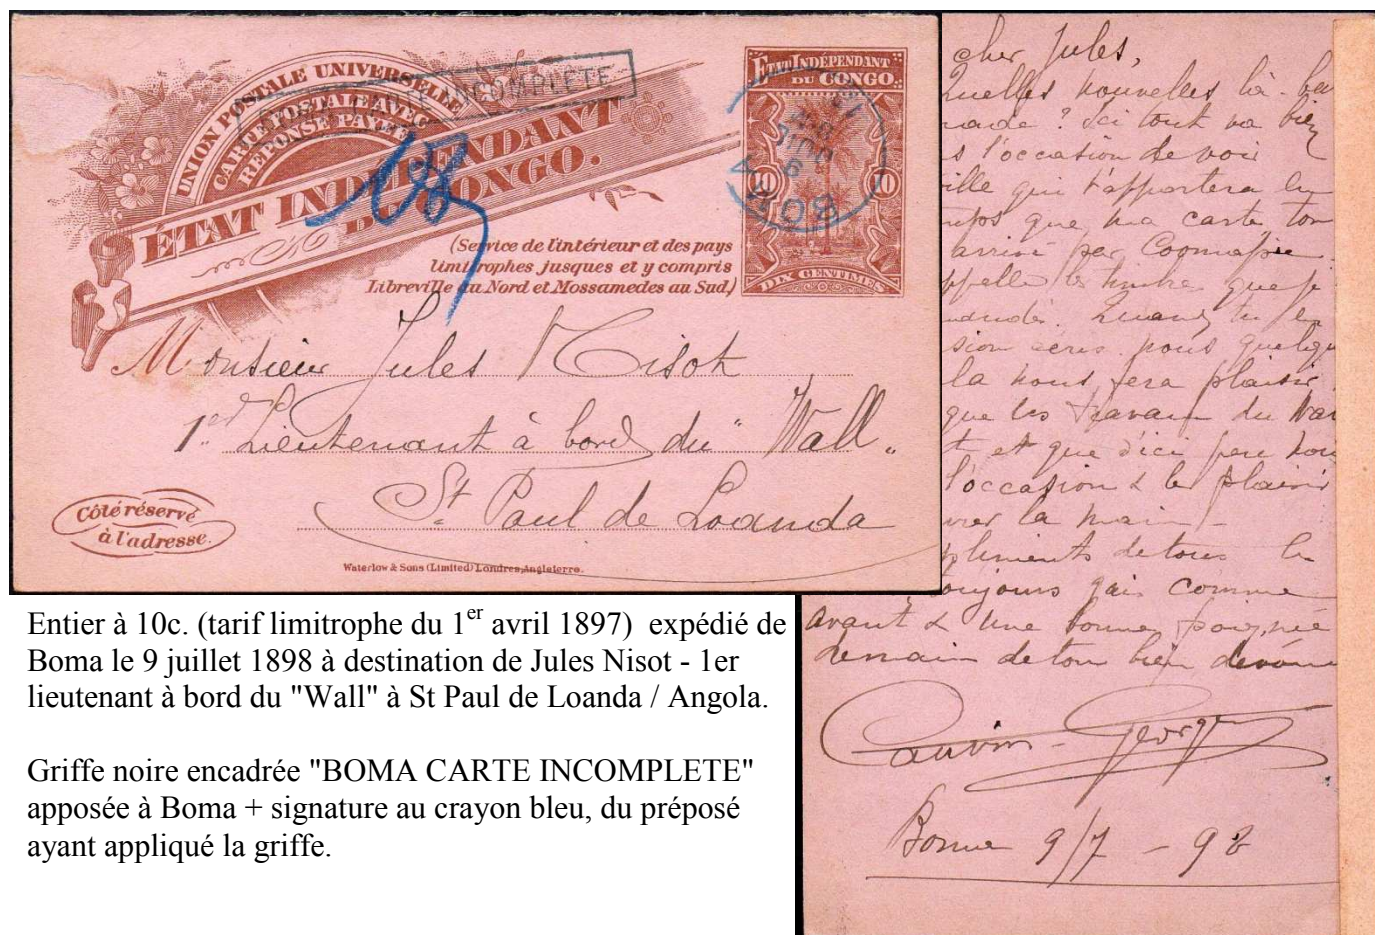 UNION POSTALE UNIVERSELLE
CARTE POSTALE AVEC
RÉPONSE PAYÉE
ÉTAT INDÉPENDANT
DU CONGO.
INCOMPLETE
ÉTAT INDÉPENDANT
DU CONGO
10 10
DIX CENTIMES
BOMA
9 JUIL
(Service de l'intérieur et des pays
limitrophes jusques et y compris
Libreville au Nord et Mossamedes au Sud.)
Monsieur Jules Nisot
1er Lieutenant à bord du "Wall"
St Paul de Loanda
Côté réservé
à l'adresse.
Waterlow & Sons (Limited) Londres, Angleterre.
cher Jules,
nouvelles là-ba
? Ici tout va bien
s l'occasion de voir
ville qui t'apportera
que ma carte ton
arrivé par
timbre que je
Quand tu
pous quelqu
la nous fera plaisir
que les travaux du Wal
t et que d'ici peu nou
l'occasion & le plaisir
la main
pliments de tous
toujours gai comme
avant & une bonne poignée
demain de ton bien dévoué
Cauvin Georges
Boma 9/7 - 98
Entier à 10c. (tarif limitrophe du 1er avril 1897) expédié de
Boma le 9 juillet 1898 à destination de Jules Nisot - 1er
lieutenant à bord du "Wall" à St Paul de Loanda / Angola.
Griffe noire encadrée "BOMA CARTE INCOMPLETE"
apposée à Boma + signature au crayon bleu, du préposé
ayant appliqué la griffe.